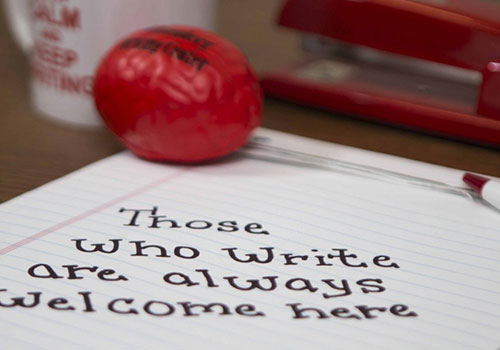 CALM
AND
KEEP
WRITING
Those
who write
are always
welcome here